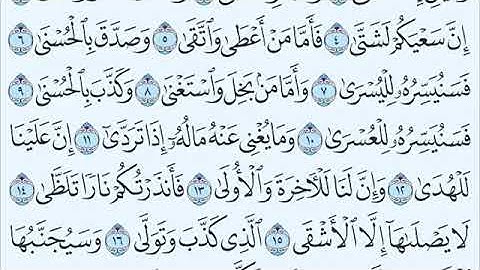 إِنَّ سَعْيَكُمْ لَشَتَّىٰ ٤ فَأَمَّا مَنْ أَعْطَىٰ وَٱتَّقَىٰ ٥ وَصَدَّقَ بِٱلْحُسْنَىٰ ٦
فَسَنُيَسِّرُهُۥ لِلْيُسْرَىٰ ٧ وَأَمَّا مَنۢ بَخِلَ وَٱسْتَغْنَىٰ ٨ وَكَذَّبَ بِٱلْحُسْنَىٰ ٩
فَسَنُيَسِّرُهُۥ لِلْعُسْرَىٰ ١٠ وَمَا يُغْنِى عَنْهُ مَالُهُۥٓ إِذَا تَرَدَّىٰٓ ١١ إِنَّ عَلَيْنَا
لَلْهُدَىٰ ١٢ وَإِنَّ لَنَا لَلْـَٔاخِرَةَ وَٱلْأُولَىٰ ١٣ فَأَنذَرْتُكُمْ نَارًا تَلَظَّىٰ ١٤
لَا يَصْلَىٰهَآ إِلَّا ٱلْأَشْقَى ١٥ ٱلَّذِى كَذَّبَ وَتَوَلَّىٰ ١٦ وَسَيُجَنَّبُهَا